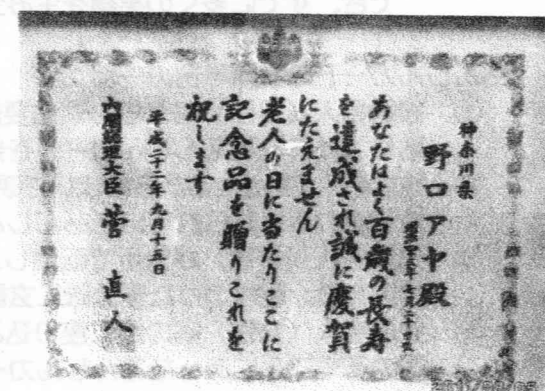 神奈川県
野口アヤ殿
あなたはよく百歳の長寿
を達成され誠に慶賀
にたえません
老人の日に当たりここに
記念品を贈りこれを
祝します
平成二十二年九月十五日
内閣総理大臣 菅直人